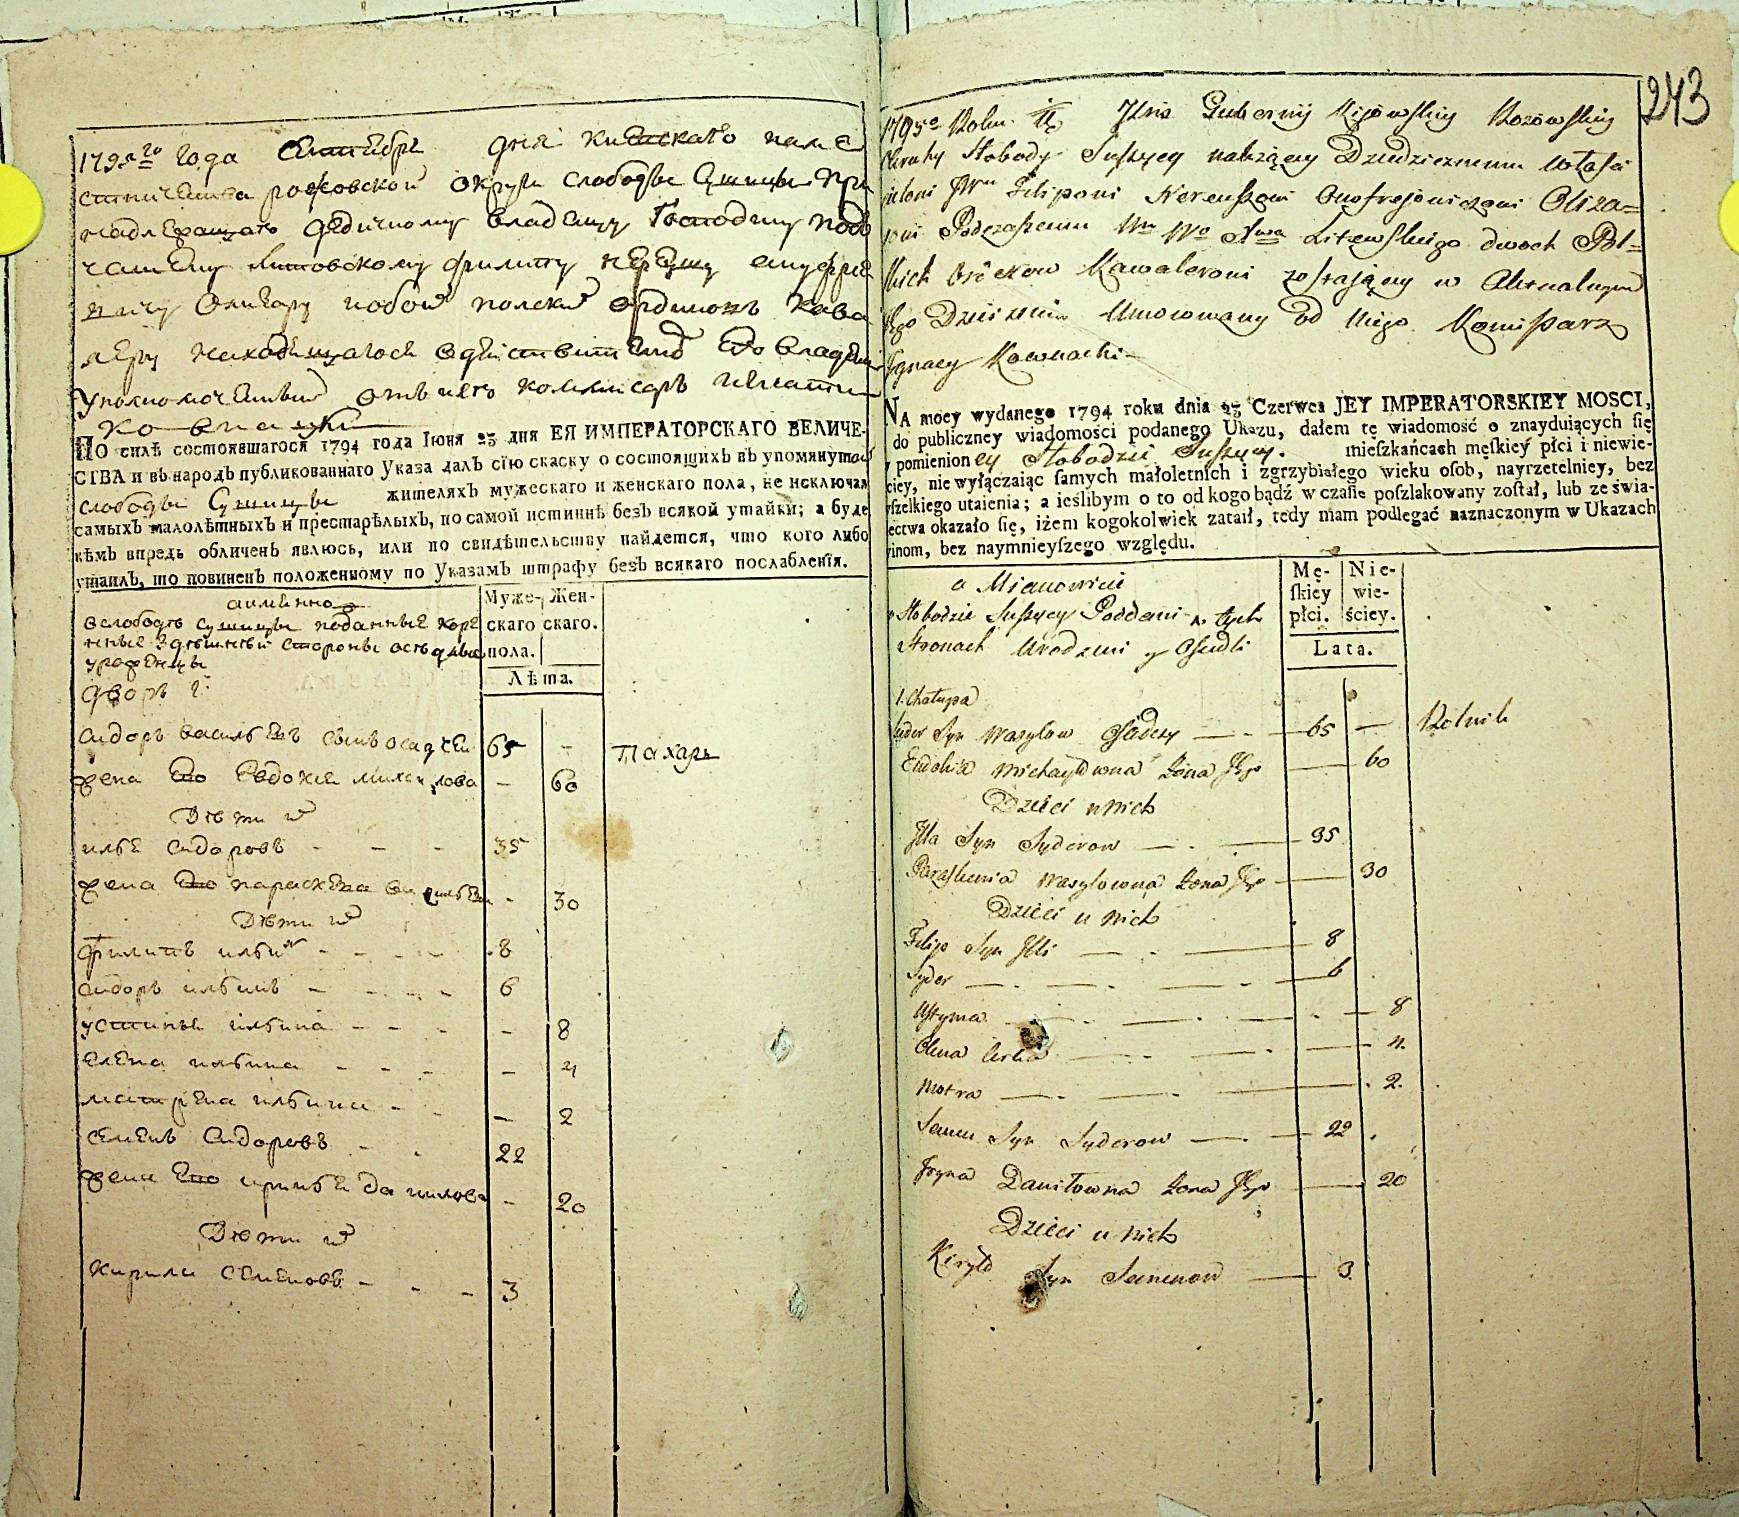 1795го года Сентебря дня киевскаго наме
стничества рожовской округи слободы Сушицы при
надлежащаго дедичному владелцу Господину подъ
чашему литовскому филипу нереушу онуфрие
вичу Олизару и обои полских орденовъ кава
леру находящагося в действителном его владении
Уполномоченный отъ него коммисаръ игнати
ковнацки
По силѣ состоявшагося 1794 года Iюня 23 дня ЕЯ ИМПЕРАТОРСКАГО ВЕЛИЧЕ-
СТВА и въ народъ публикованнаго Указа далъ сїю скаску о состоящихъ въ упомянутой
слободы Сушицы жителяхъ мужескаго и женскаго пола, не исключая
самыхъ малолѣтныхъ и престарѣлыхъ, по самой истиннѣ безъ всякой утайки; а буде
кѣмъ впредь обличенъ явлюсь, или по свидѣтельству найдется, что кого либо
утаилъ, то повиненъ положенному по Указамъ штрафу безъ всякаго послабленїя.
аименно
Муже- Жен-
скаго скаго.
пола.
Лѣта.
в слободе сушицы поданные коре
нные здешней стороны оседлые
уроженцы
дворъ 1й
сидоръ васильевъ сынъ осадчей 65 - пахарь
жена его Евдокия михаилова - 60
Дети их
илья сидоровъ - - - 35
жена его параскева васильева - 30
Дети их
филипъ ильин - - - - 8
сидоръ ильинъ - - - - 6
устинья ильина - - - - 8
елена ильина - - - - 4
матрена ильина - - - 2
семенъ сидоровъ - - 22
жена его ирина данилова - 20
Дети их
кирила семеновъ - - - 3
243
1795o Roku Jbris Gubernij Kijowskiey Rozowskiey
Okruhy Słobody Suszycy należącey Dziedzicznemu Własci
cielowi JWu Filipowi Nereuszowi Onofrejowiczowi Oliza=
rowi Podczaszemu Litewskiego dwoch Pol=
skich Orderow Kawalerowi zostającey w Aktualnym
Jego Dzierzeniu Umocowany od Niego Komisarz
Jgnacy Kownacki -
NA mocy wydanego 1794 roku dnia 23 Czerwca JEY IMPERATORSKIEY MOSCI,
do publiczney wiadomości podanego Ukazu, dałem tę wiadomość o znayduiących się
w pomienioney Słobodzie Suszycy. mieſzkańcach męſkiey płci i niewie-
ściey, nie wyłączaiąc ſamych małoletnich i zgrzybiałego wieku oſob, nayrzetelniey, bez
wſzelkiego utaienia; a ieſlibym o to od kogo bądź w czaſie poſzlakowany zoſtał, lub ze świa-
dectwa okazało ſię, iżem kogokolwiek zataił, tedy mam podlegać naznaczonym w Ukazach
winom, bez naymnieyſzego względu.
a Mianowicie
Mę- Nie-
ſkiey wie-
płci. ściey.
Lata.
w Słobodzie Suszycy Poddani w tych
Stronach Urodzeni y Osiedli
1. Chałupa
Sydor Syn Wasylow Osadczy — 65 — Rolnik
Eudokia Michayłowna Żona Jego — 60
Dzieci u nich
Jlla Syn Syderow — 35
Paraskewia Wasylowna Żona Jego — 30
Dzieci u nich
Filip Syn Jlli — 8
Sydor — 6
Ustyma — 8
Olena — 4.
Motra — 2.
Semen Syn Syderow — 22
Jryna Daniłowna Żona Jego — 20
Dzieci u nich
Kiryło Syn Semenow — 3.